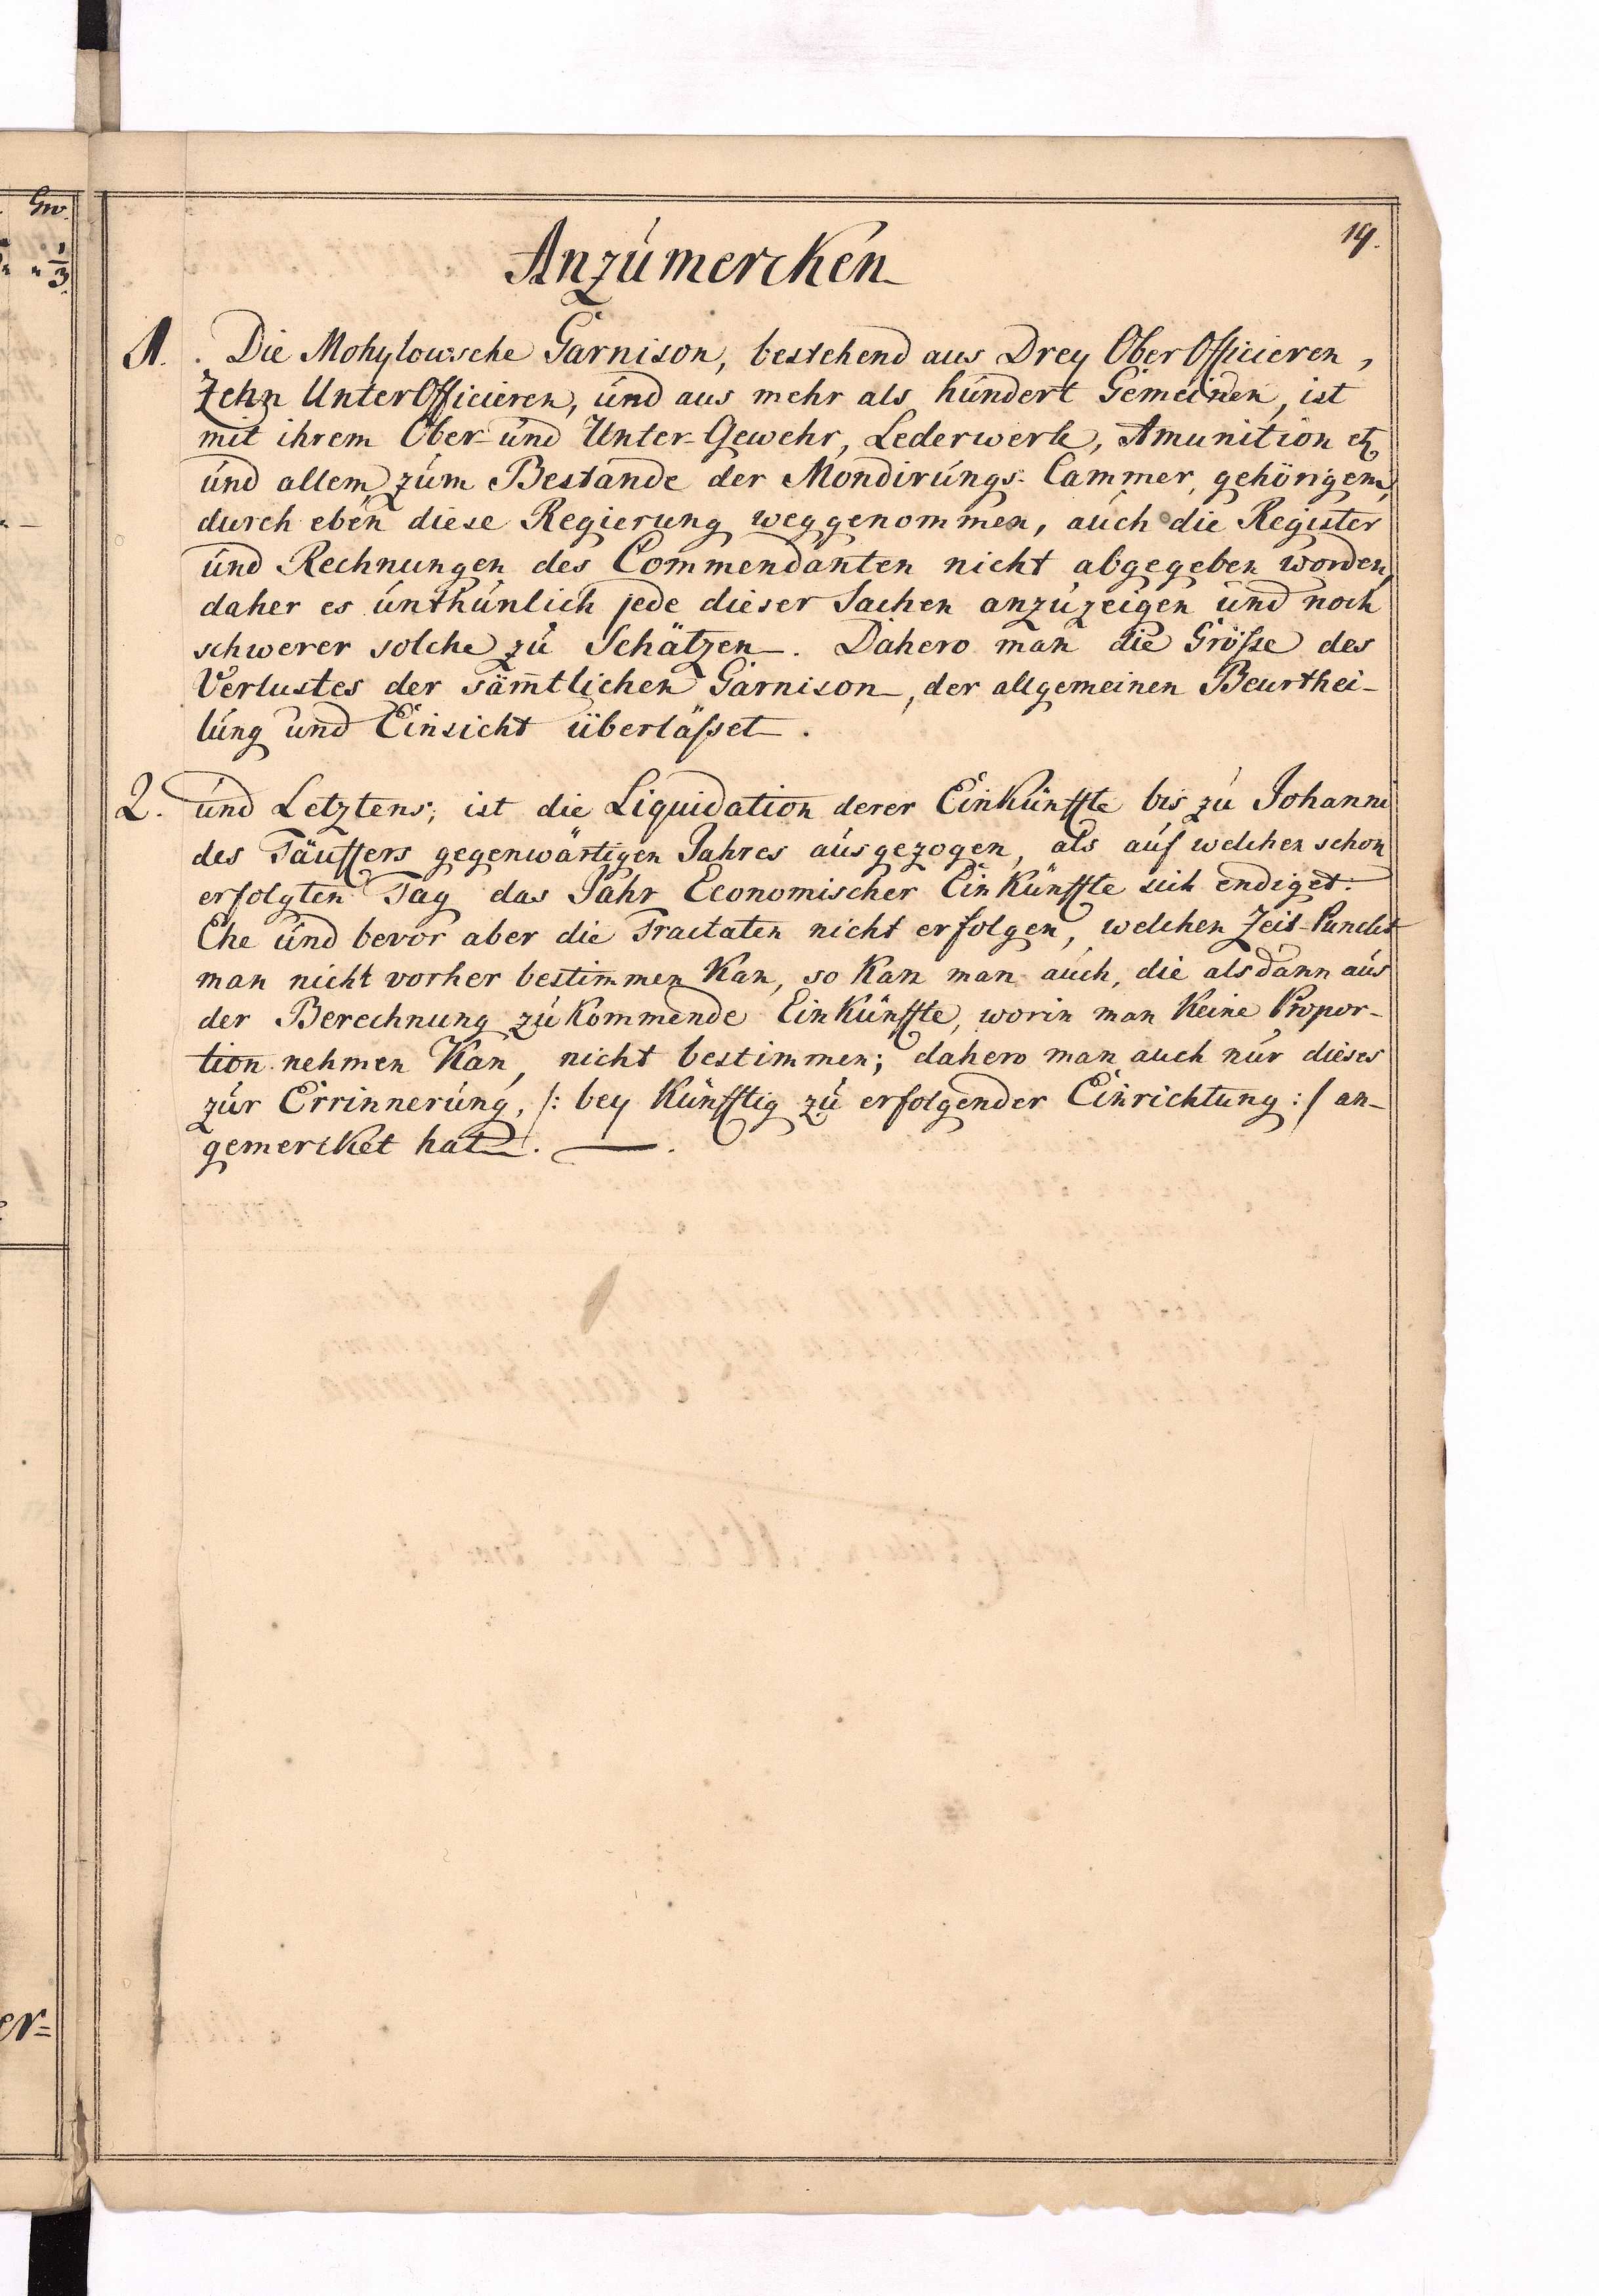 19.
Anzumercken
1. Die Mohylowsche Garnison, bestehend aus Drey Ober Officieren,
Zehn Unter Officieren, und aus mehr als hundert Gemeinen, ist
mit ihrem Ober- und Unter-Gewehr, Lederwerk, Amunition etz
und allem zum Bestande der Mondirungs-Cammer, gehörigem,
durch eben diese Regierung weggenommen, auch die Register
und Rechnungen des Commendanten nicht abgegeben worden,
daher es unthunlich jede dieser Sachen anzuzeigen und noch
schwerer solche zu Schätzen. Dahero man die Größe des
Verlustes der sämtlichen Garnison, der allgemeinen Beurthei-
lung und Einsicht überläßet.
2. und Letztens; ist die Liquidation derer Einkünffte bis zu Johanni
des Täuffers gegenwärtigen Jahres ausgezogen, als auf welchen schon
erfolgten Tag das Jahr Economischer Einkünffte sich endiget.
Ehe und bevor aber die Tractaten nicht erfolgen, welchen Zeit-Punckt
man nicht vorher bestimmen Kan, so Kan man auch, die alsdann aus
der Berechnung zukommende Einkünffte, worin man Keine Propor-
tion nehmen Kan, nicht bestimmen; dahero man auch nur dieses
zur Errinnerung, /: bey Künfftig zu erfolgender Einrichtung :/ an-
gemercket hat.